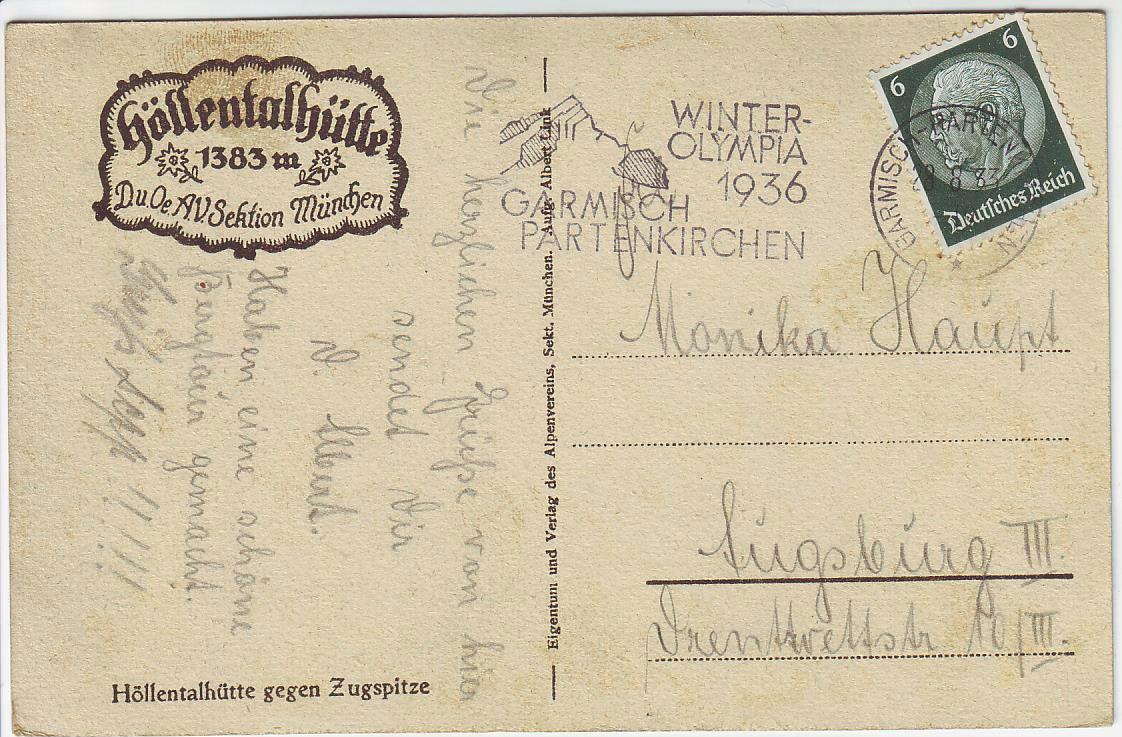 Höllentalhütte
1383 m
D.u.Oe AV. Sektion München
Die herzlichen Grüße von hier
sendet Dir
D. Albert.
Haben eine schöne
Bergtour gemacht.
Höllentalhütte gegen Zugspitze
Eigentum und Verlag des Alpenvereins, Sekt. München. Aufn. Albert
WINTER-
OLYMPIA
1936
GARMISCH
PARTENKIRCHEN
6
6
Deutsches Reich
GARMISCH-PARTEN
Monika Haupt
Augsburg III.
Drentwettstr 10/III.